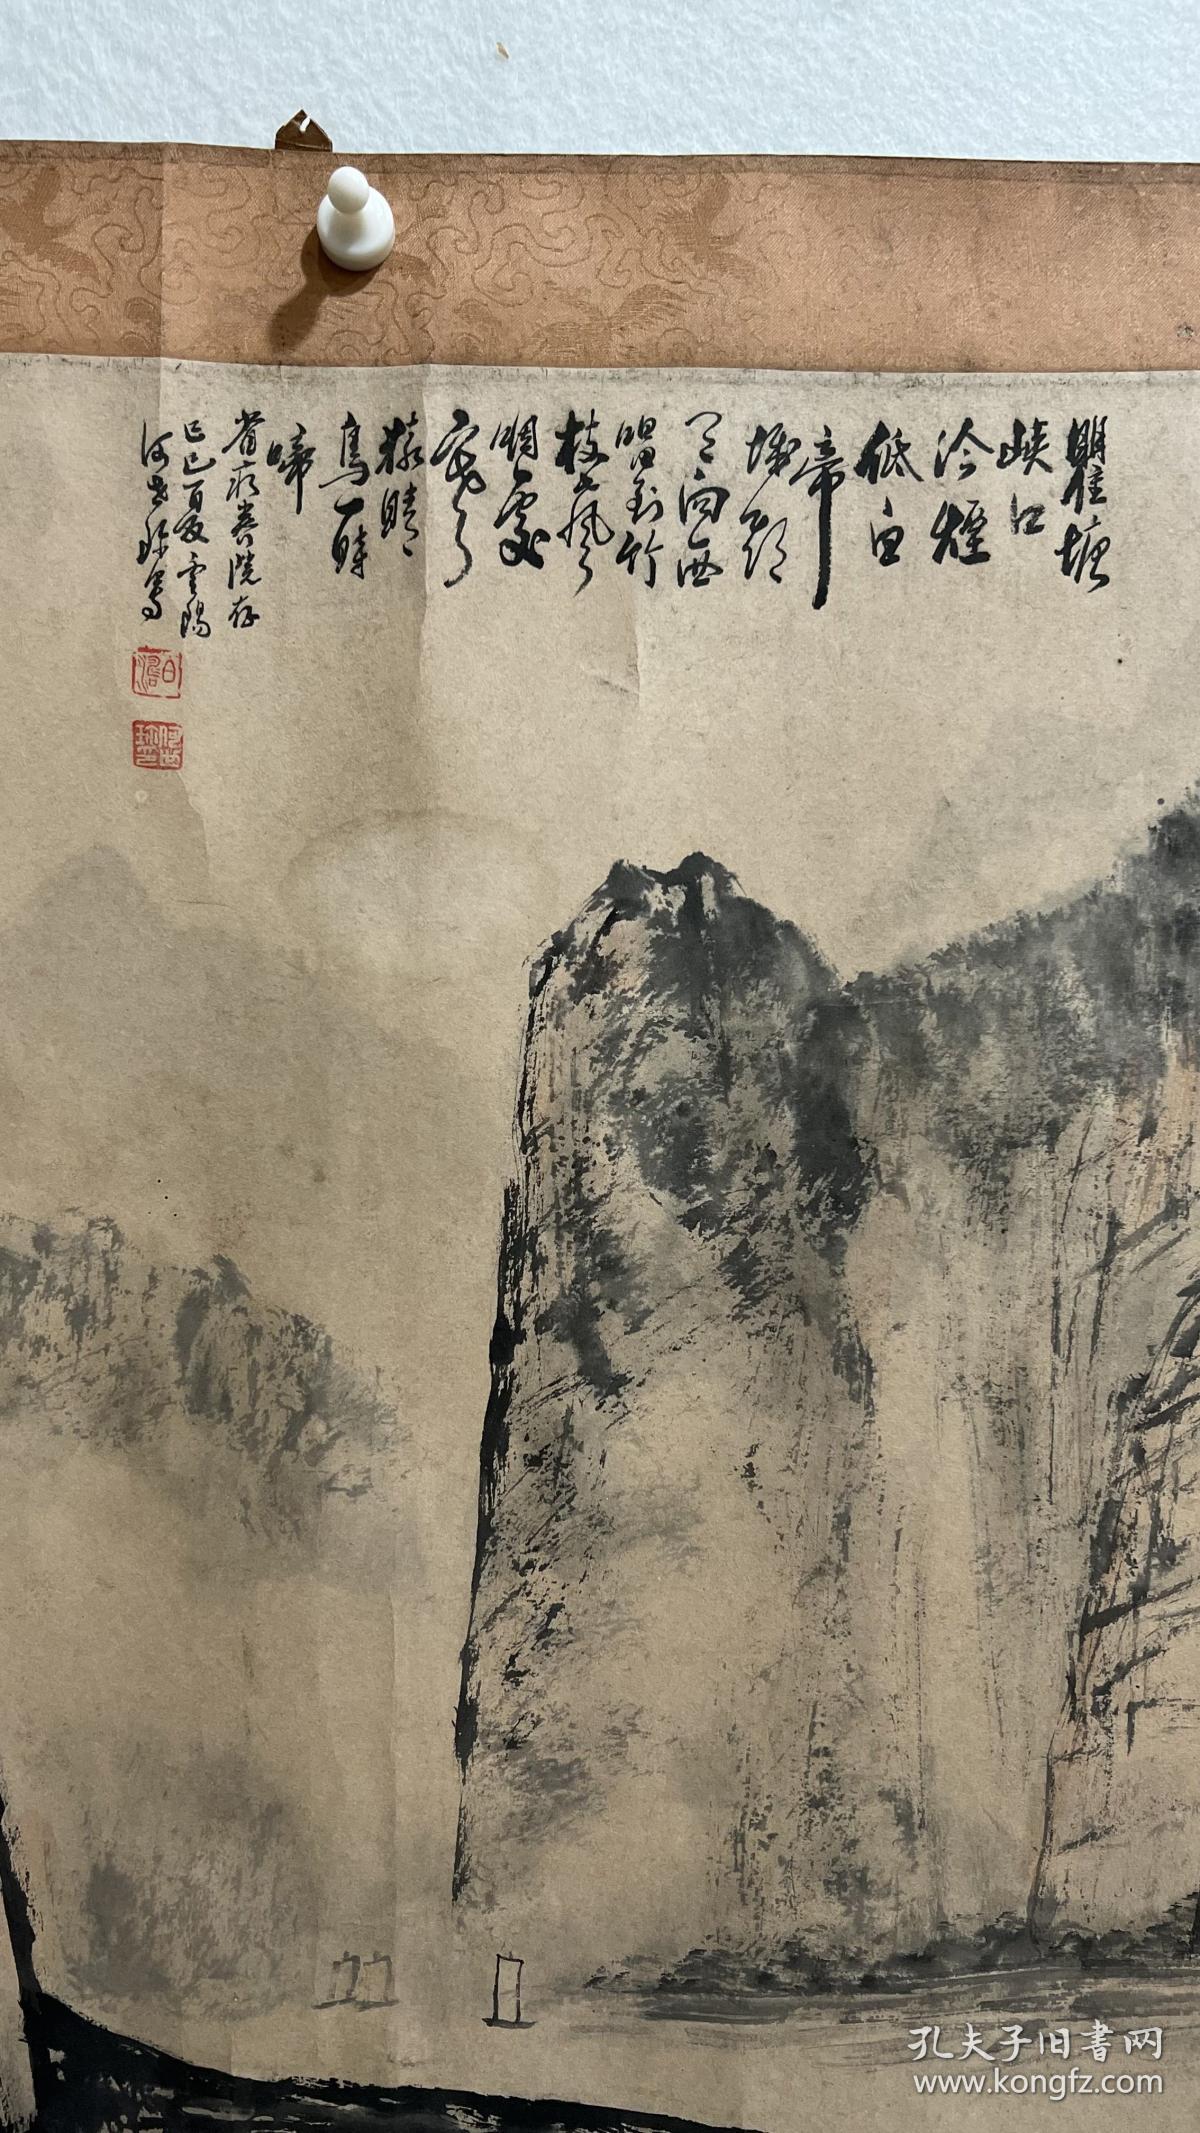 瞿塘
峽口
冷煙
低白
帝
城頭
月向西
唱到竹
枝聲
咽處
寒
猿晴
鳥一時
啼
院存
己巳夏雲陽
何世珍寫
孔夫子旧書网
www.kongfz.com